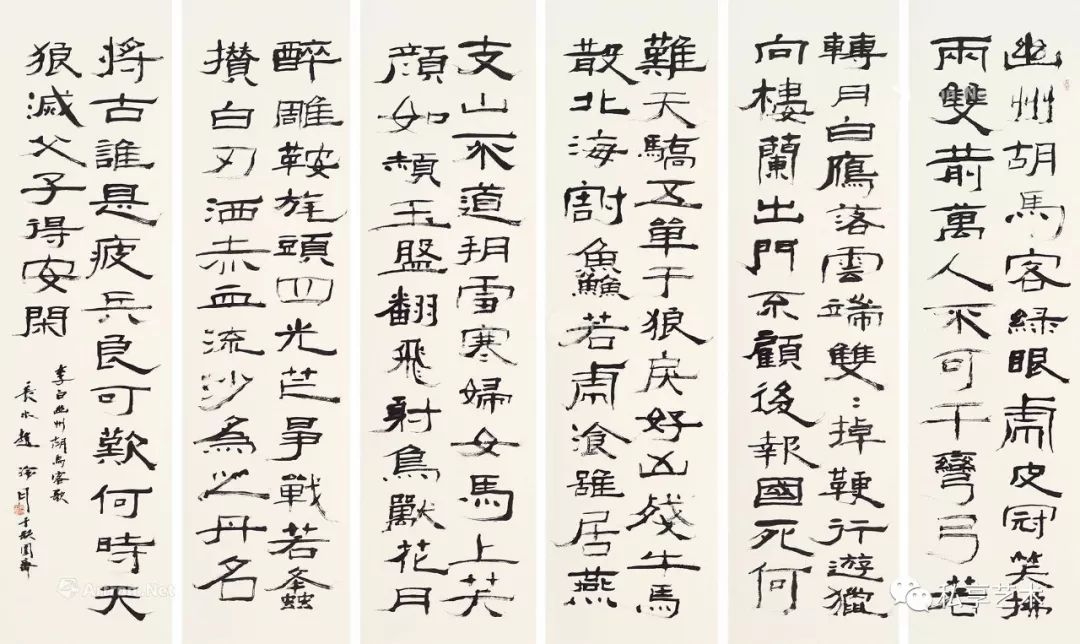 幽州胡馬客緑眼虎皮冠笑拂
兩雙箭萬人不可干彎弓若
轉月白鴈落雲端雙：掉鞭行遊獵
向樓蘭出門不顧後報國死何
難天驕五單于狼戾好凶殘牛馬
散北海割鱻若虎飡雖居燕
支山不道朔雪寒婦女馬上笑
顏如赬玉盤翻飛射鳥獸花月
醉雕鞍旄頭四光芒爭戰若蠭
攢白刃洒赤血流沙為之丹名
將古誰是疲兵良可歎何時天
狼滅父子得安閑
李白幽州胡馬客歌
長水趙
Artron.Net
私享艺术